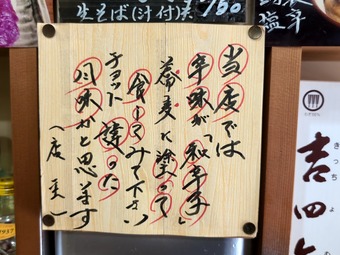 生そば(汁付)
750
当店では
辛味が「和辛子」
蕎麦に塗って
食してみて下さい
チョット違った
風味かと思います
(店主)
きっちょ
吉四